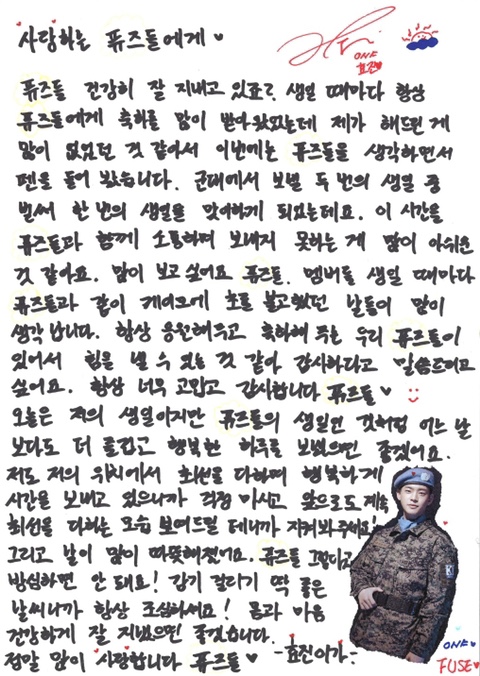 사랑하는 퓨즈들에게♥
ONF
효진
퓨즈들 건강히 잘 지내고 있죠? 생일 때마다 항상
퓨즈들에게 축하를 많이 받아왔었는데 제가 해드린 게
많이 없었던 것 같아서 이번에는 퓨즈들을 생각하면서
펜을 들어 봤습니다. 군대에서 보낼 두 번의 생일 중
벌써 한 번의 생일을 맞이하게 되었는데요. 이 시간을
퓨즈들과 함께 소통하며 보내지 못하는 게 많이 아쉬운
것 같아요. 많이 보고 싶어요 퓨즈들. 멤버들 생일 때마다
퓨즈들과 같이 케이크에 초를 불고했던 날들이 많이
생각 납니다. 항상 응원해주고 축하해 주는 우리 퓨즈들이
있어서 힘을 낼 수 있는 것 같아 감사하다고 말씀드리고
싶어요. 항상 너무 고맙고 감사합니다 퓨즈들♥
오늘은 저의 생일이지만 퓨즈들의 생일인 것처럼 어느 날
보다도 더 즐겁고 행복한 하루를 보냈으면 좋겠어요.
저도 저의 위치에서 최선을 다하며 행복하게
시간을 보내고 있으니까 걱정 마시고 앞으로도 계속
최선을 다하는 모습 보여드릴 테니까 지켜봐주세요!
그리고 날이 많이 따뜻해졌어요. 퓨즈들 그렇다고
방심하면 안 돼요! 감기 걸리기 딱 좋은
날씨니까 항상 조심하세요! 몸과 마음
건강하게 잘 지냈으면 좋겠습니다.
정말 많이 사랑합니다 퓨즈들♥ -효진이가-
ONF
FUSE♥